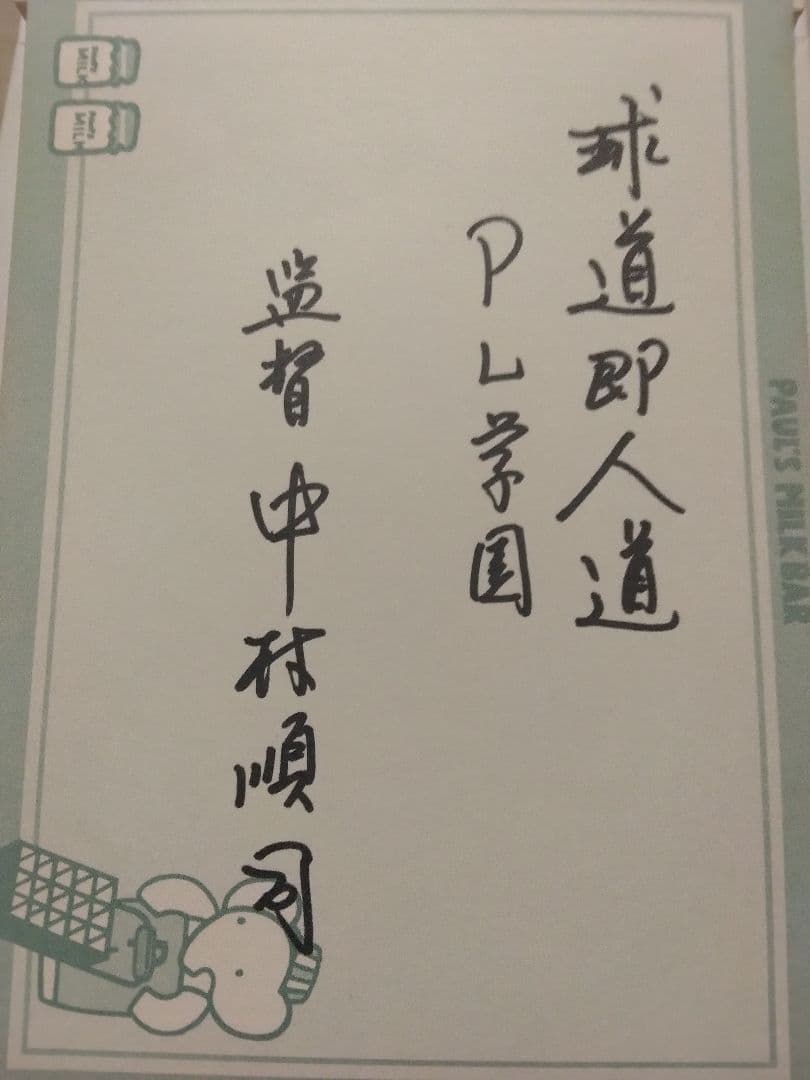 球道即人道
PL学園
監督 中村順司
PAUL'S MILK BAR
MILK
MILK